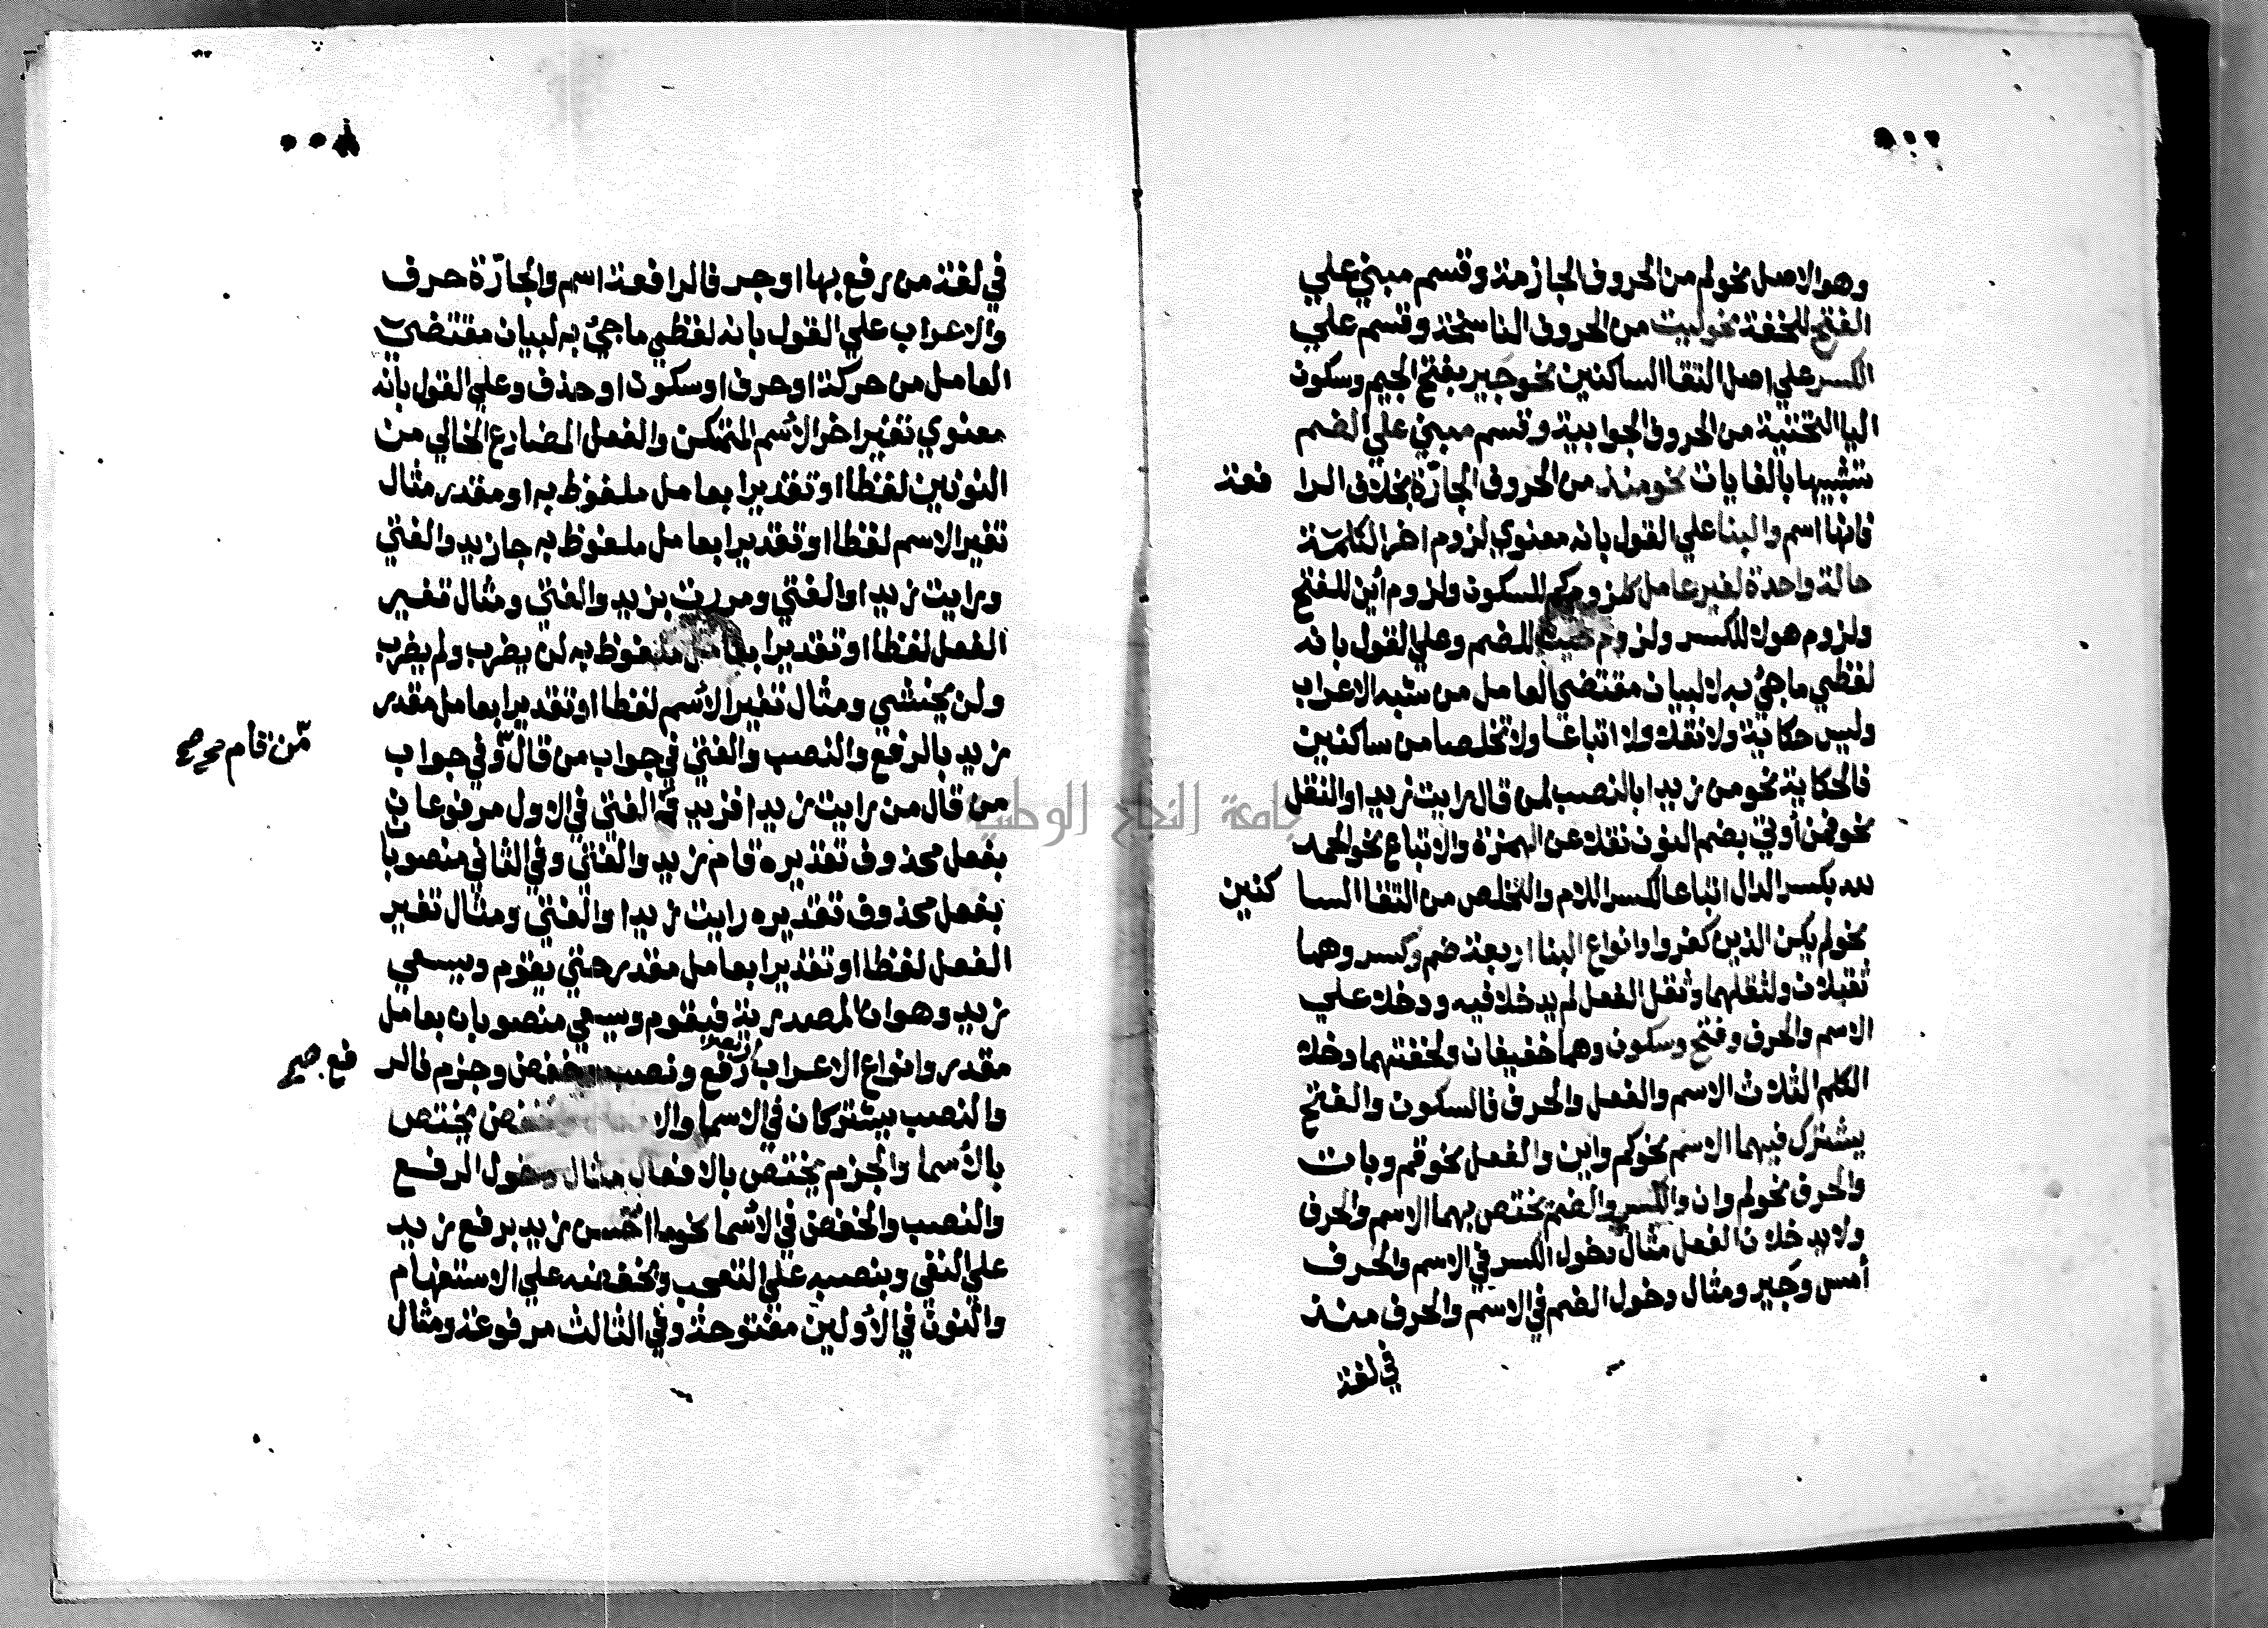 وهو الاصل نحو لم من الحروف الجازمة وقسم مبني علي
الفتح للخفة نحو ليت من الحروف الناسخة وقسم علي
الكسر علي اصل التقا الساكنين نحو جَير بفتح الجيم وسكون
اليا التحتية من الحروف الجوابية وقسم مبني علي الضم
تشبيها بالغايات نحو منذ من الحروف الجارّة بخلاف الرا فعة
فانها اسم والبنا علي القول بانه معنوي لزوم اخر الكلمة
حالة واحدة لغير عامل كلزوم كم للسكون ولزوم أين للفتح
ولزوم هولا للكسر ولزوم حيث للضم وعلي القول بانه
لفظي ما جيُ به لا لبيان مقتضي العامل من شبه الاعراب
وليس حكاية ولا نقلا ولا اتباعا ولا تخلصا من ساكنين
فالحكاية نحو من زيدا بالنصب لمن قال رايت زيدا والنقل
نحو فمن أوتي بضم النون نقلا عن الهمزة والاتباع نحو الحمد
لله بكسر الدال اتباعا لكسر اللام والتخلص من التقا السا كنين
نحو لم يكن الذين كفروا وانواع البنا اربعة ضم وكسر وهما
ثقيلان ولثقلهما وثقل الفعل لم يدخلا فيه ودخلا علي
الاسم والحرف وفتح وسكون وهما خفيفان ولخفتهما دخلا
الكلم الثلاث الاسم والفعل والحرف فالسكون والفتح
يشترك فيهما الاسم نحو كم واين والفعل نحو قم وبات
والحرف نحو لم وان والكسر والضم يختص بهما الاسم والحرف
ولا يدخلان الفعل مثال دخول الكسر في الاسم والحرف
أمس وجَير ومثال دخول الضم في الاسم والحرف منذ
في لغة
في لغة من رفع بها او جر فالرافعة اسم والجارّة حرف
والاعراب علي القول بانه لفظي ما جيُ به لبيان مقتضي
العامل من حركة او حرف او سكون او حذف وعلي القول بانه
معنوي تغير اخر الاسم المتمكن والفعل المضارع الخالي من
النونين لفظا او تقديرا بعامل ملفوظ به او مقدر مثال
تغير الاسم لفظا او تقديرا بعامل ملفوظ به جا زيد والفتي
ورايت زيدا والفتي ومررت بزيد والفتي ومثال تغير
الفعل لفظا او تقديرا بعامل ملفوظ به لن يضرب ولم يضرب
ولن يخشي ومثال تغير الاسم لفظا او تقديرا بعامل مقدر
زيد بالرفع والنصب والفتي في جواب من قال وفي جواب
مّن قام صح
من قال من رايت زيدا فزيد والفتي في الاول مرفوعان
بفعل محذوف تقديره قام زيد والفتي وفي الثاني منصوبان
بفعل محذوف تقديره رايت زيدا والفتي ومثال تغير
الفعل لفظا او تقديرا بعامل مقدر حتي يقوم ويسعي
زيد وهو ان المصدرية فيقوم ويسعي منصوبان بعامل
مقدر وانواع الاعراب اربعة رفع ونصب وخفض وجزم فالر فع صح
والنصب يشتركان في الاسما والا والخفض يختص
بالاسما والجزم يختص بالافعال مثال دخول الرفع
والنصب والخفض في الاسما نحو ما احسن زيد برفع زيد
علي النفي وبنصبه علي التعجب وبخفضه علي الاستفهام
والنون في الاولين مفتوحة وفي الثالث مرفوعة ومثال
جامعة النجاح الوطنية